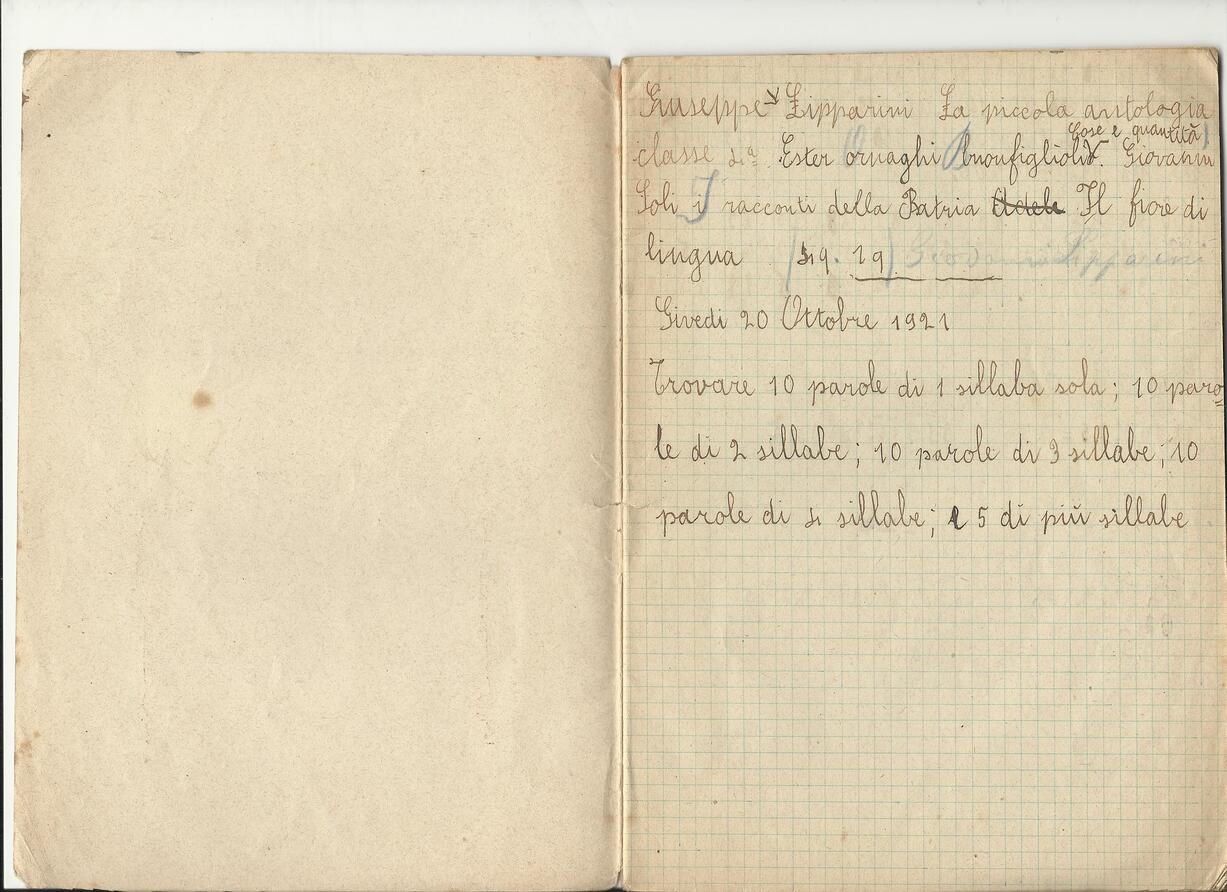 Giuseppe Lipparini La piccola antologia
Cose e quantità)
classe 4ª. Ester Ornaghi Buonfiglioli. Giovanni
Soli I racconti della Patria Adele Il fiore di
lingua (49. 19) Giovanni Lipparini
Givedi 20 Ottobre 1921
Trovare 10 parole di 1 sillaba sola; 10 paro=
le di 2 sillabe; 10 parole di 3 sillabe; 10
parole di 4 sillabe; e 5 di più sillabe